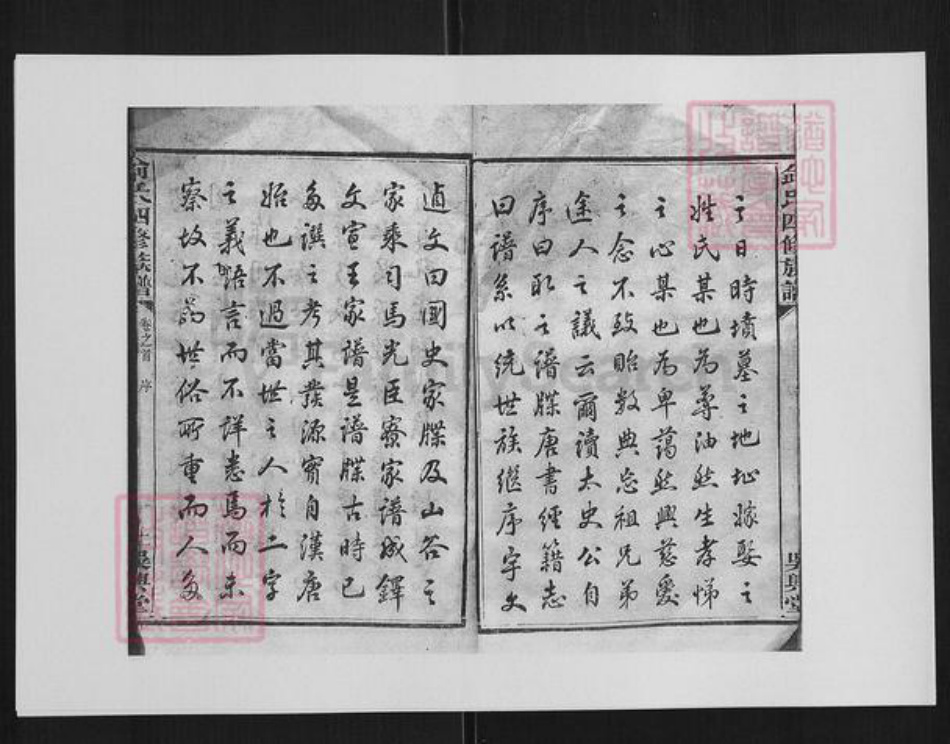 俞氏四修族譜
吳興堂
之日時墳墓之地址嫁娶之
姓氏某也為尊油然生孝悌
之心某也為卑藹然興慈愛
之念不致貽數典忘祖兄弟
途人之議云爾讀太史公自
序曰取之譜牒唐書經籍志
曰譜系以統世族繼序宇文
逌文曰國史家牒及山谷之
家乘司馬光臣寮家譜城鐸
文宣王家譜是譜牒古時已
多譔之考其發源實自漢唐
始也不過當世之人於二字
之義語言而不詳悉焉而未
察故不為世俗所重而人多
俞氏四修族譜
卷之首
序
吳興堂